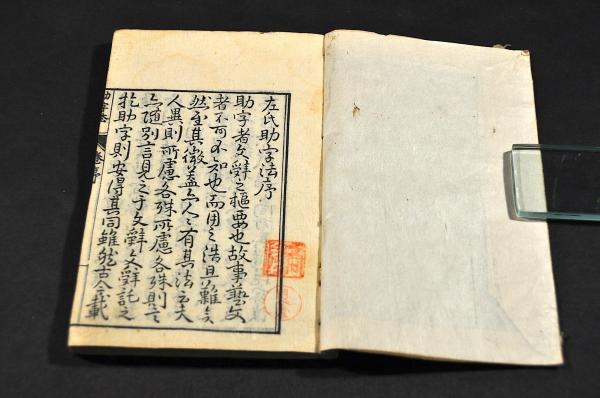 左氏助字法序
助字者文辭之樞要也故事藝文
者不可不知也而用之浩且難矣
然至其微蓋亦人〻有其法夫
人異則所慮各殊所慮各殊則言
亦隨別言見之于文辭文辭託之
於助字則安得其同雖然古今載
卷序